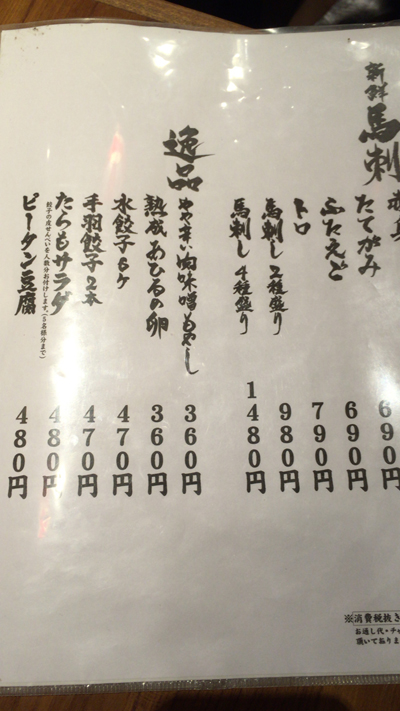 新鮮 馬刺
赤身 690円
たてがみ 690円
ふたえご 790円
トロ 980円
馬刺し2種盛り
馬刺し4種盛り 1480円
逸品
やや辛い肉味噌もやし 360円
熟成あひるの卵 360円
水餃子6ケ 470円
手羽餃子2本 470円
たらもサラダ 480円
餃子の皮せんべいを人数分お付けします。(5名様分まで)
ピータン豆腐 480円
※消費税抜き
お通し代・チャ
頂いておりま